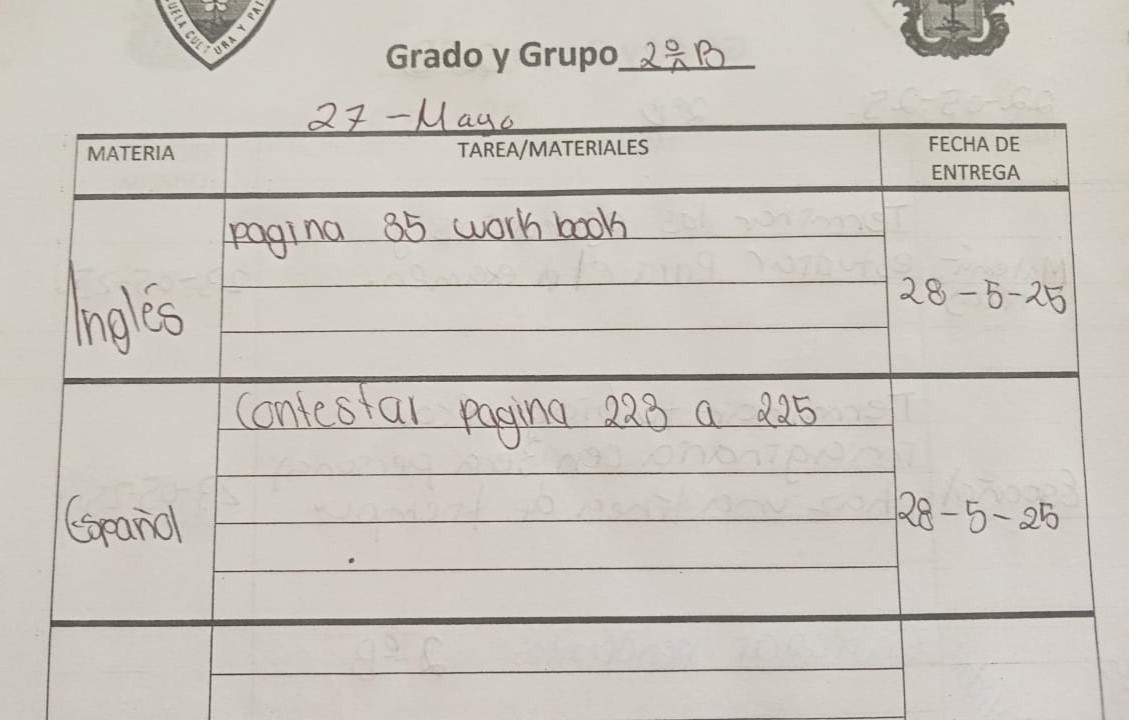 CULTURA Y PAT
Grado y Grupo 2º B
27 - Mayo
MATERIA TAREA/MATERIALES FECHA DE ENTREGA
pagina 85 work book
Inglés
28-5-25
Contestar pagina 223 a 225
Español
28-5-25